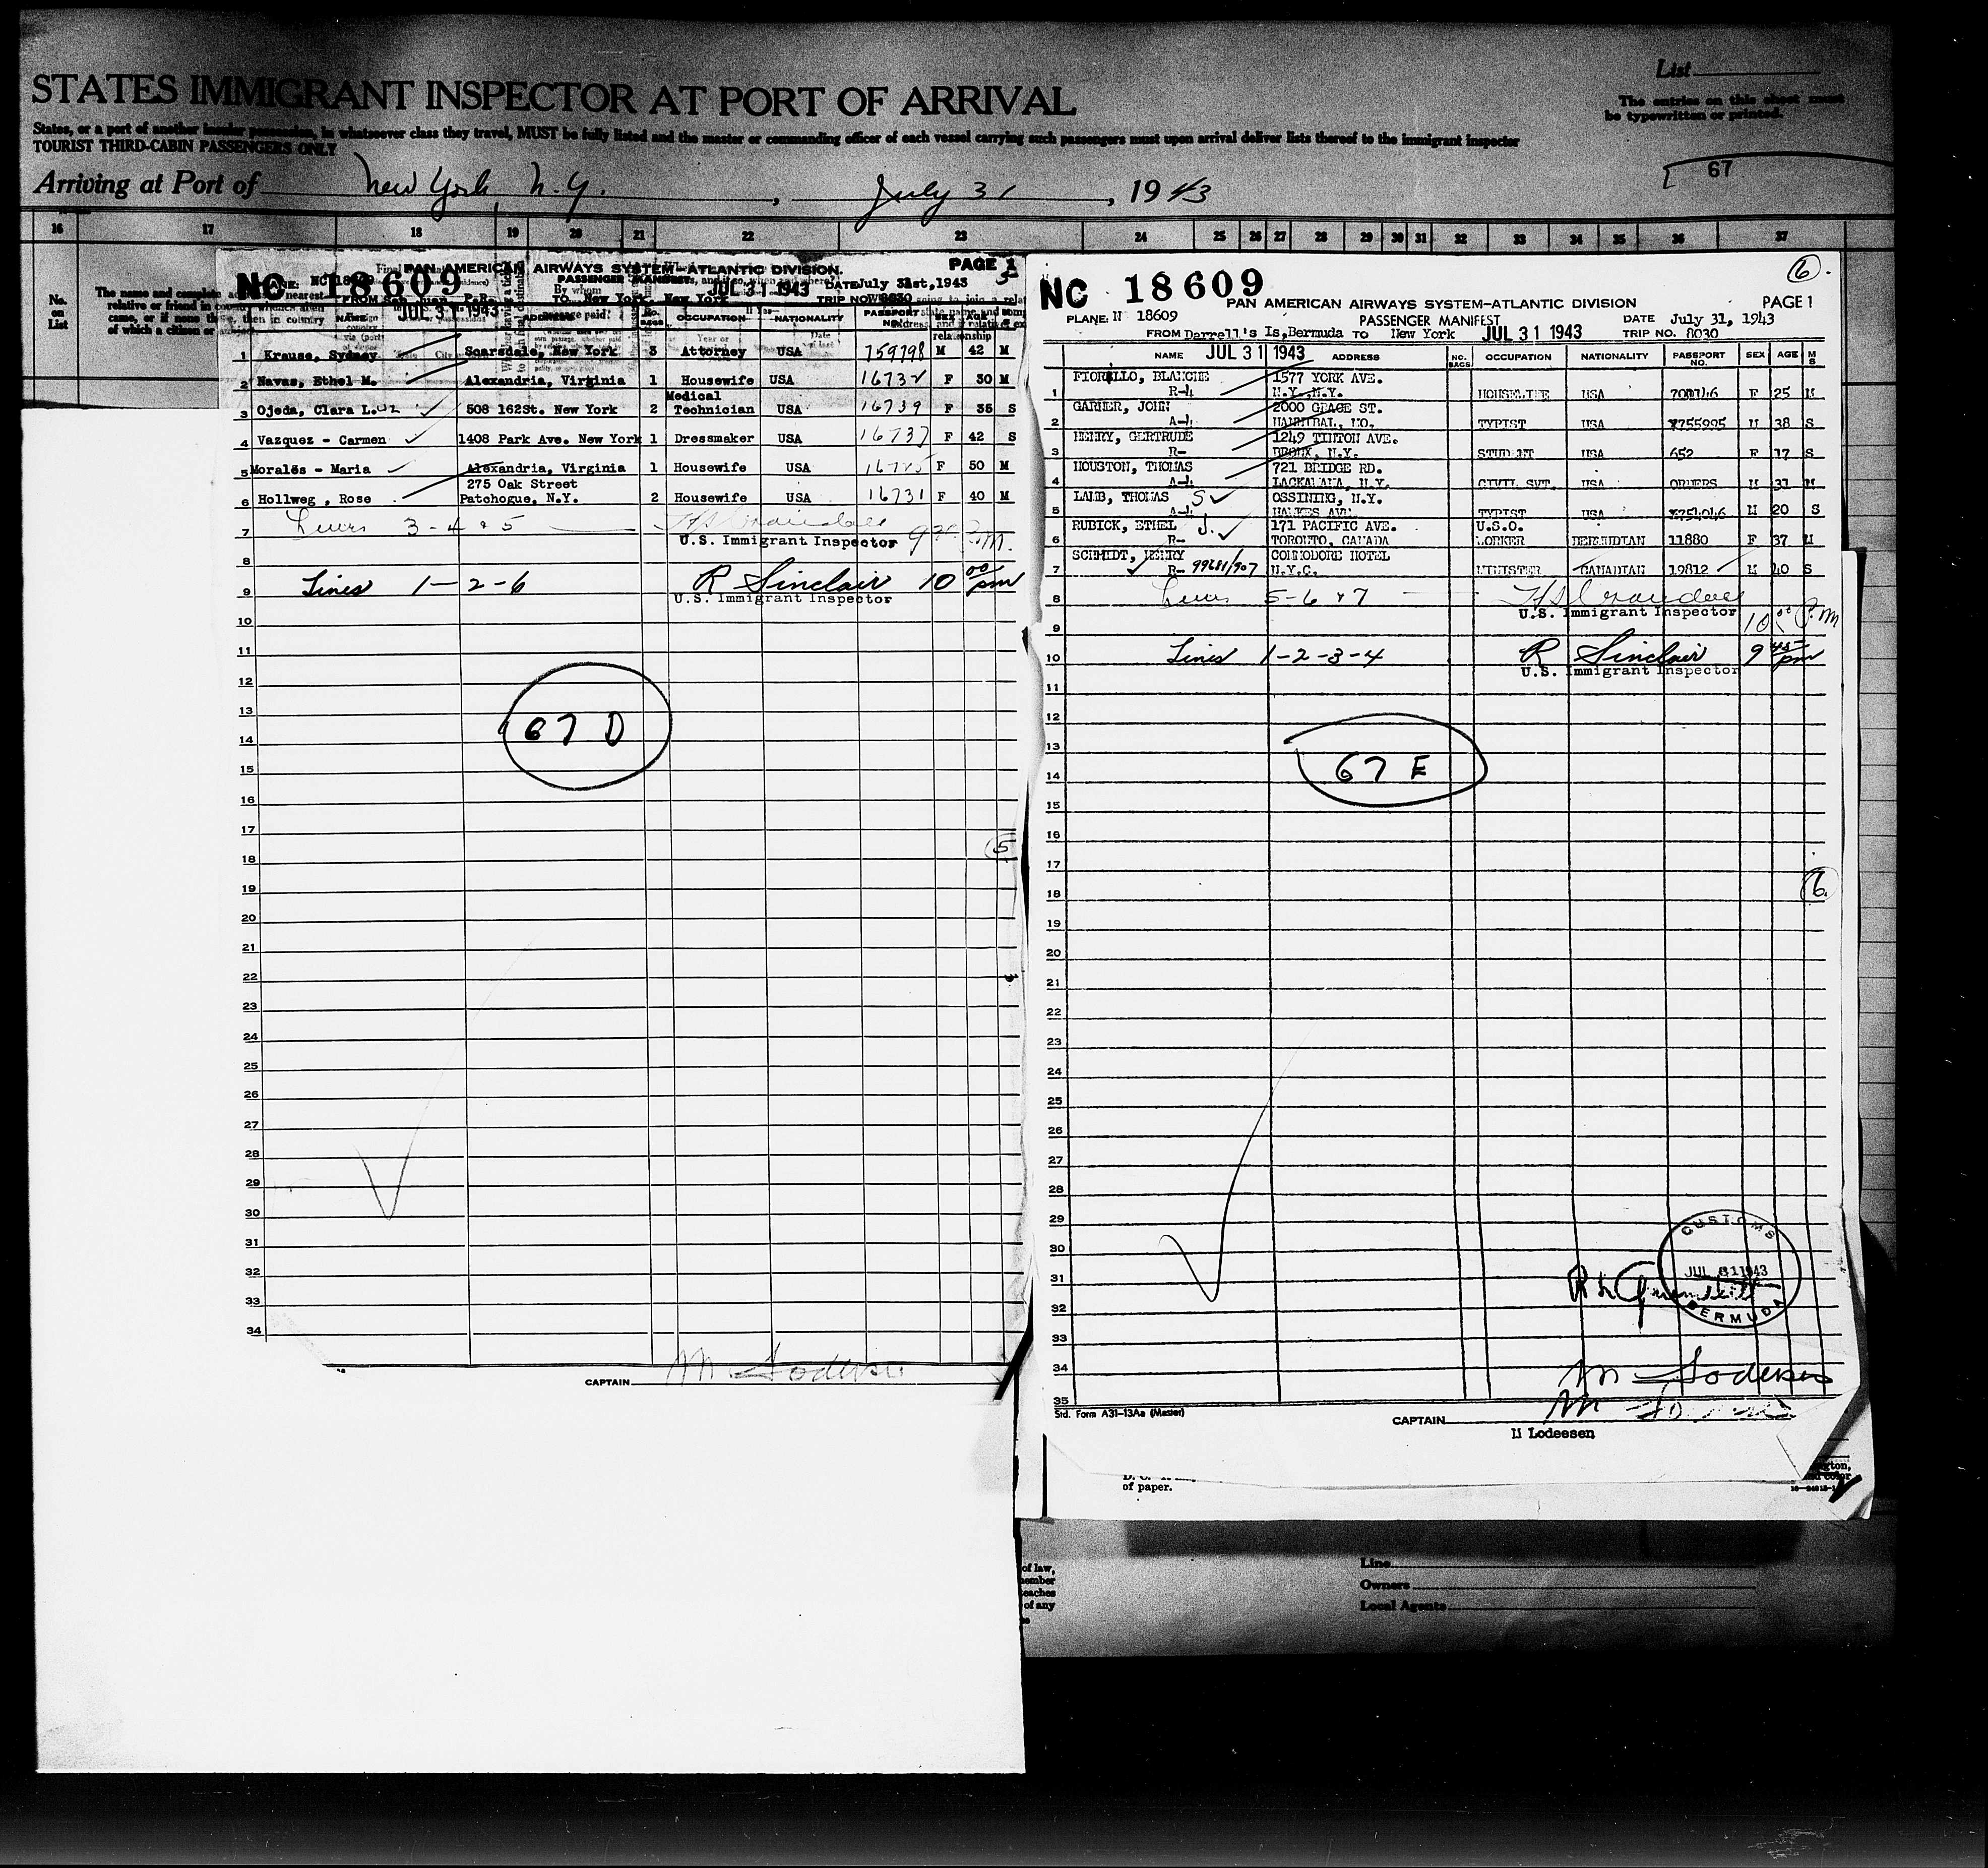 STATES IMMIGRANT INSPECTOR AT PORT OF ARRIVAL
States, or a port of another insular possession, in whatsoever class they travel, MUST be fully listed and the master or commanding officer of each vessel carrying such passengers must upon arrival deliver lists thereof to the immigrant inspector
TOURIST THIRD-CABIN PASSENGERS ONLY
List
The entries on this sheet must
be typewritten or printed.
Arriving at Port of New York N.Y., July 31, 1943
67
16 17 18 19 20 21 22 23 24 25 26 27 28 29 30 31 32 33 34 35 36 37
No.
on
List
NC 18609
PAN AMERICAN AIRWAYS SYSTEM—ATLANTIC DIVISION.
PAGE
PASSENGER MANIFEST
JUL 31 1943 DATE July 31st, 1943
FROM San Juan, P.R. TO New York, New York TRIP NO. 8030
JUL 31 1943
NAME ADDRESS OCCUPATION NATIONALITY PASSPORT NO.
1 Krause, Sydney Scarsdale, New York 3 Attorney USA 759798 M 42 M
2 Navas, Ethel M. Alexandria, Virginia 1 Housewife USA 16732 F 30 M
3 Ojeda, Clara L. 508 162St. New York 2 Medical Technician USA 16739 F 35 S
4 Vazquez - Carmen 1408 Park Ave. New York 1 Dressmaker USA 16737 F 42 S
5 Morales - Maria Alexandria, Virginia 1 Housewife USA F 50 M
6 Hollweg , Rose 275 Oak Street Patchogue, N.Y. 2 Housewife USA 16731 F 40 M
7 Lines 3-4 & 5
U.S. Immigrant Inspector
8
9 Lines 1-2-6 R Sinclair 10 00 pm
U.S. Immigrant Inspector
10
11
12
13
67 D
14
15
16
17
5
18
19
20
21
22
23
24
25
26
27
28
29
30
31
32
33
34
CAPTAIN M Lodeesen
6
NC 18609
PAN AMERICAN AIRWAYS SYSTEM—ATLANTIC DIVISION PAGE 1
PLANE: N 18609 PASSENGER MANIFEST DATE July 31, 1943
FROM Darrell's Is, Bermuda TO New York JUL 31 1943 TRIP NO. 8030
NAME JUL 31 1943 ADDRESS NO. BAGS OCCUPATION NATIONALITY PASSPORT NO. SEX AGE M S
FIORILLO, BLANCHE 1577 YORK AVE.
1 R-4 N.Y. N.Y. HOUSEWIFE USA F 25 M
GARNER, JOHN 2000 GRACE ST.
2 A-4 HANNIBAL, MO. TYPIST USA X755995 M 38 S
HENRY, GERTRUDE 1249 TINTON AVE.
3 R- BRONX, N.Y. STUDENT USA 652 F 17 S
HOUSTON, THOMAS 721 BRIDGE RD.
4 A-4 LACKAWANA, N.Y. CIVIL SVT. USA ORDERS M 31 M
LAMB, THOMAS S OSSINING, N.Y.
5 A-4 HAWKES AVE. TYPIST USA X751046 M 20 S
RUBICK, ETHEL J. 171 PACIFIC AVE. U.S.O.
6 R- TORONTO, CANADA WORKER BERMUDIAN 11880 F 37 M
SCHMIDT, HENRY COMMODORE HOTEL
7 R- 99681/907 N.Y.C. MINISTER CANADIAN 19812 M 40 S
8 Lines 5-6 & 7
U.S. Immigrant Inspector 10 00 P.M
9
10 Lines 1-2-3-4 R Sinclair 9 45 pm
U.S. Immigrant Inspector
11
12
13
67 E
14
15
16
17
18
6
19
20
21
22
23
24
25
26
27
28
29
CUSTOMS
30
JUL 31 1943
31
BERMUDA
32
33
34
M Lodeesen
35
Std. Form A31-13Aa (Master)
CAPTAIN
M Lodeesen
of paper.
of law,
of any
Line
Owners
Local Agents